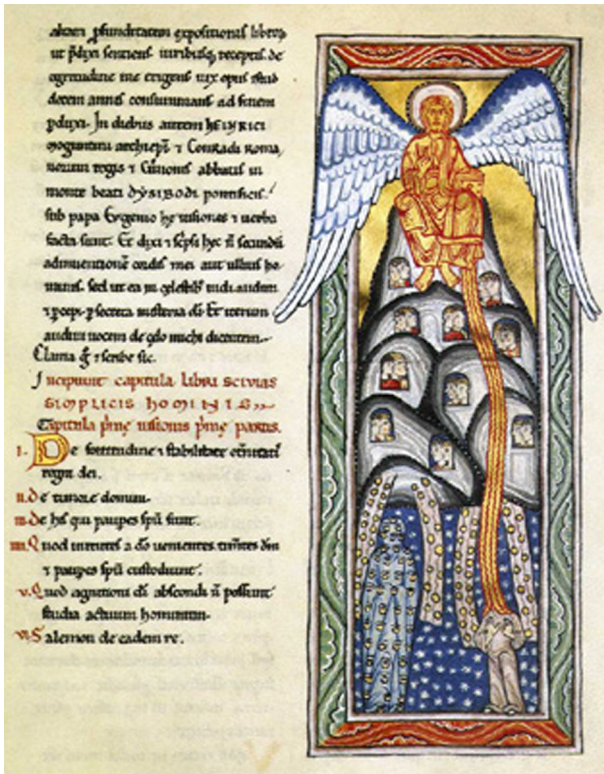 altam ꝓfunditatem expositionis libroꝝ
ut p̄dixi sentiens uiribusq; receptis. de
egritudine me erigens uix opus istud
decem annis consummans ad finem
ꝑduxi. In diebus autem HEINRICI
moguntini archiepi̅ ⁊ Conradi roma
norum regis ⁊ Cunonis abbatis in
monte beati DYSIBODI pontificis.
sub papa Eugenio he uisiones ⁊ uerba
facta sunt. Et dixi ⁊ sc̅psi hec n̅ secundu̅
adinuentione̅ cordis mei aut ullius ho
minis. sed ut ea in celestib; uidi audiui
⁊ ꝑcepi ꝑ secreta misteria di̅. Et iterum
audiui uocem de celo michi dicentem.
Clama g̊ ⁊ scribe sic.
Incipiunt capitula libri scivias
simplicis hominis
Capitula p̅me uisionis p̅me partis.
I. De fortitudine ⁊ stabilitate et̅nitatis
regni dei.
II. De timore domini.
III. De his qui paup̲es sp̅u sunt.
IIII. Quod uirtutes a d̅o uenientes tim̅tes d̅m
⁊ paup̲es sp̅u custodiunt.
V. Quod agnitioni d̅i abscondi n̅ possunt
studia actuum hominum.
VI. Salemon de eadem re.